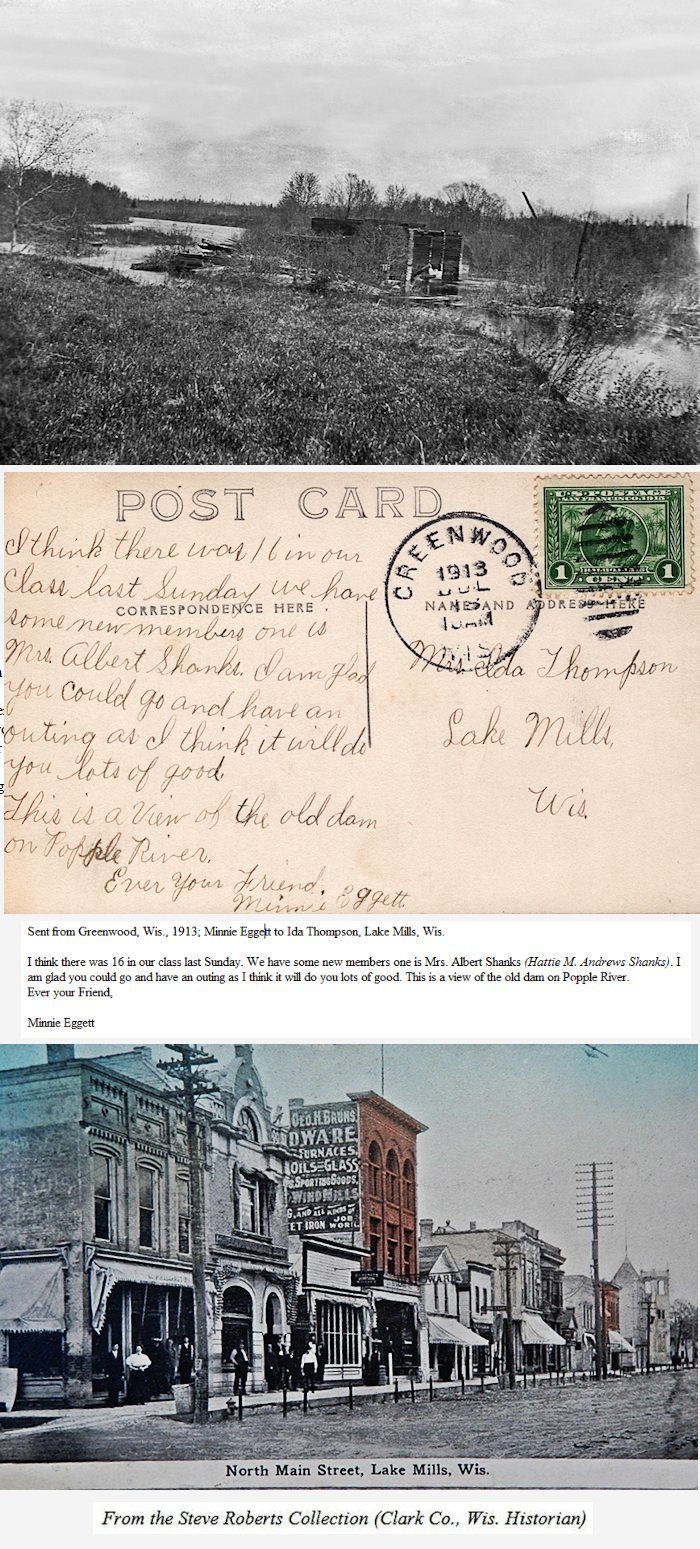 POST CARD
CORRESPONDENCE HERE
NAME AND ADDRESS HERE
GREENWOOD
1913
JUL
10AM
WIS
U.S. POSTAGE
1 CENT 1
I think there was 16 in our
Class last Sunday we have
some new members one is
Mrs. Albert Shanks. I am glad
you could go and have an
outing as I think it will do
you lots of good.
This is a View of the old dam
on Popple River.
Ever Your Friend.
Minnie Eggett.
Ida Thompson
Lake Mills,
Wis.
Sent from Greenwood, Wis., 1913; Minnie Eggett to Ida Thompson, Lake Mills, Wis.
I think there was 16 in our class last Sunday. We have some new members one is Mrs. Albert Shanks (Hattie M. Andrews Shanks). I
am glad you could go and have an outing as I think it will do you lots of good. This is a view of the old dam on Popple River.
Ever your Friend,
Minnie Eggett
GEO. H. BRUNS.
DWARE
FURNACES,
OILS GLASS
SPORTING GOODS,
WINDMILLS
G, AND ALL KINDS OF
ET IRON JOB WORK.
WARE
North Main Street, Lake Mills, Wis.
From the Steve Roberts Collection (Clark Co., Wis. Historian)